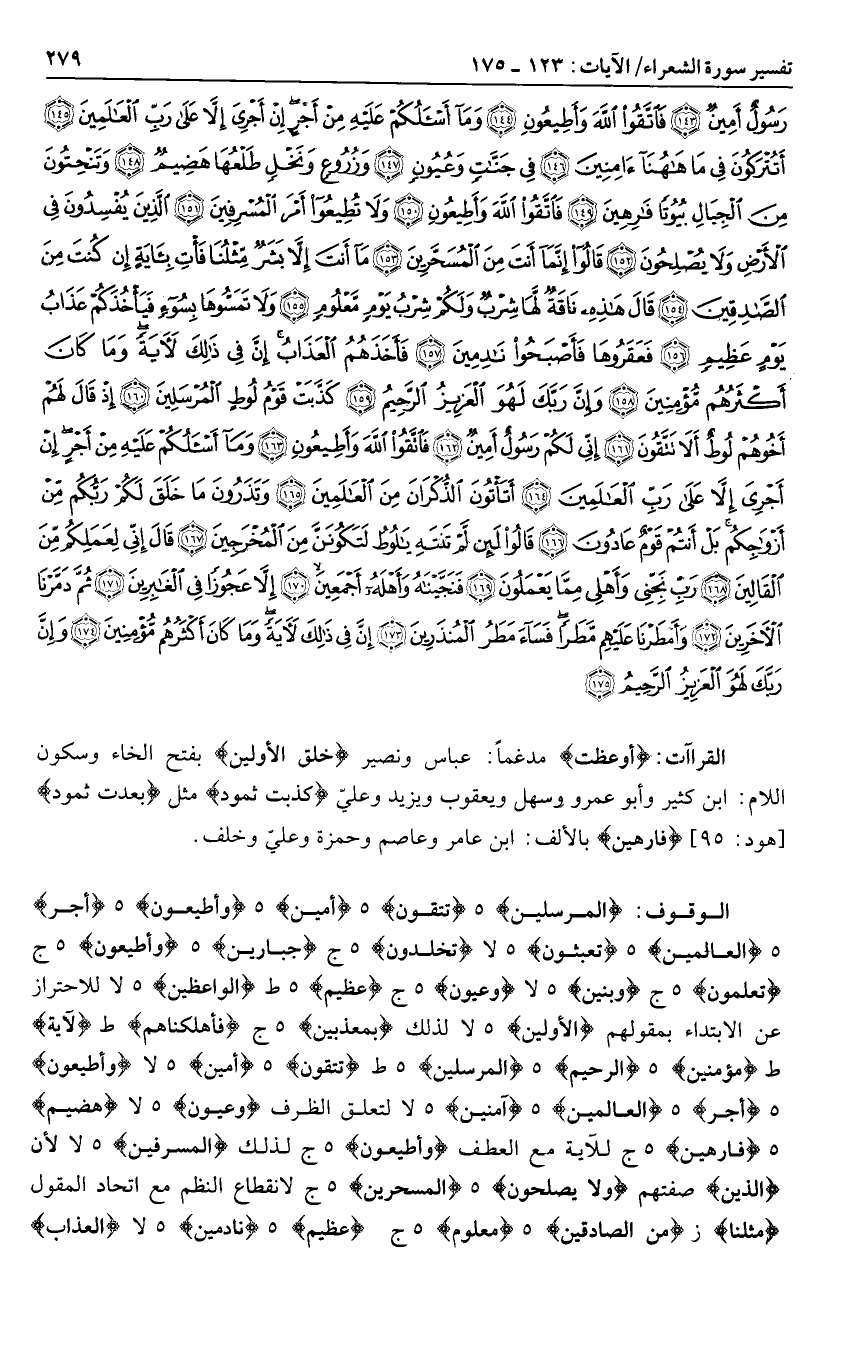 تفسير سورة الشعراء/ الآيات: ١٢٣ - ١٧٥
٢٧٩
رَسُولٌ أَمِينٌ ١٤٣ فَٱتَّقُوا۟ ٱللَّهَ وَأَطِيعُونِ ١٤٤ وَمَآ أَسْـَٔلُكُمْ عَلَيْهِ مِنْ أَجْرٍ ۖ إِنْ أَجْرِىَ إِلَّا عَلَىٰ رَبِّ ٱلْعَٰلَمِينَ ١٤٥
أَتُتْرَكُونَ فِى مَا هَٰهُنَآ ءَامِنِينَ ١٤٦ فِى جَنَّٰتٍ وَعُيُونٍ ١٤٧ وَزُرُوعٍ وَنَخْلٍ طَلْعُهَا هَضِيمٌ ١٤٨ وَتَنْحِتُونَ
مِنَ ٱلْجِبَالِ بُيُوتًا فَٰرِهِينَ ١٤٩ فَٱتَّقُوا۟ ٱللَّهَ وَأَطِيعُونِ ١٥٠ وَلَا تُطِيعُوٓا۟ أَمْرَ ٱلْمُسْرِفِينَ ١٥١ ٱلَّذِينَ يُفْسِدُونَ فِى
ٱلْأَرْضِ وَلَا يُصْلِحُونَ ١٥٢ قَالُوٓا۟ إِنَّمَآ أَنتَ مِنَ ٱلْمُسَحَّرِينَ ١٥٣ مَآ أَنتَ إِلَّا بَشَرٌ مِّثْلُنَا فَأْتِ بِـَٔايَةٍ إِن كُنتَ مِنَ
ٱلصَّٰدِقِينَ ١٥٤ قَالَ هَٰذِهِۦ نَاقَةٌ لَّهَا شِرْبٌ وَلَكُمْ شِرْبُ يَوْمٍ مَّعْلُومٍ ١٥٥ وَلَا تَمَسُّوهَا بِسُوٓءٍ فَيَأْخُذَكُمْ عَذَابُ
يَوْمٍ عَظِيمٍ ١٥٦ فَعَقَرُوهَا فَأَصْبَحُوا۟ نَٰدِمِينَ ١٥٧ فَأَخَذَهُمُ ٱلْعَذَابُ ۗ إِنَّ فِى ذَٰلِكَ لَءَايَةً ۖ وَمَا كَانَ
أَكْثَرُهُم مُّؤْمِنِينَ ١٥٨ وَإِنَّ رَبَّكَ لَهُوَ ٱلْعَزِيزُ ٱلرَّحِيمُ ١٥٩ كَذَّبَتْ قَوْمُ لُوطٍ ٱلْمُرْسَلِينَ ١٦٠ إِذْ قَالَ لَهُمْ
أَخُوهُمْ لُوطٌ أَلَا تَتَّقُونَ ١٦١ إِنِّى لَكُمْ رَسُولٌ أَمِينٌ ١٦٢ فَٱتَّقُوا۟ ٱللَّهَ وَأَطِيعُونِ ١٦٣ وَمَآ أَسْـَٔلُكُمْ عَلَيْهِ مِنْ أَجْرٍ ۖ إِنْ
أَجْرِىَ إِلَّا عَلَىٰ رَبِّ ٱلْعَٰلَمِينَ ١٦٤ أَتَأْتُونَ ٱلذُّكْرَانَ مِنَ ٱلْعَٰلَمِينَ ١٦٥ وَتَذَرُونَ مَا خَلَقَ لَكُمْ رَبُّكُم مِّنْ
أَزْوَٰجِكُم ۚ بَلْ أَنتُمْ قَوْمٌ عَادُونَ ١٦٦ قَالُوا۟ لَئِن لَّمْ تَنتَهِ يَٰلُوطُ لَتَكُونَنَّ مِنَ ٱلْمُخْرَجِينَ ١٦٧ قَالَ إِنِّى لِعَمَلِكُم مِّنَ
ٱلْقَالِينَ ١٦٨ رَبِّ نَجِّنِى وَأَهْلِى مِمَّا يَعْمَلُونَ ١٦٩ فَنَجَّيْنَٰهُ وَأَهْلَهُۥٓ أَجْمَعِينَ ١٧٠ إِلَّا عَجُوزًا فِى ٱلْغَٰبِرِينَ ١٧١ ثُمَّ دَمَّرْنَا
ٱلْءَاخَرِينَ ١٧٢ وَأَمْطَرْنَا عَلَيْهِم مَّطَرًا ۖ فَسَآءَ مَطَرُ ٱلْمُنذَرِينَ ١٧٣ إِنَّ فِى ذَٰلِكَ لَءَايَةً ۖ وَمَا كَانَ أَكْثَرُهُم مُّؤْمِنِينَ ١٧٤ وَإِنَّ
رَبَّكَ لَهُوَ ٱلْعَزِيزُ ٱلرَّحِيمُ ١٧٥
القراآت: ﴿أوعظت﴾ مدغماً: عباس ونصير ﴿خلق الأولين﴾ بفتح الخاء وسكون
اللام: ابن كثير وأبو عمرو وسهل ويعقوب ويزيد وعليّ ﴿كذبت ثمود﴾ مثل ﴿بعدت ثمود﴾
[هود: ٩٥] ﴿فارهين﴾ بالألف: ابن عامر وعاصم وحمزة وعليّ وخلف.
الوقوف: ﴿المرسلين﴾ ٥ ﴿تتقون﴾ ٥ ﴿أمين﴾ ٥ ﴿وأطيعون﴾ ٥ ﴿أجر﴾
٥ ﴿العالمين﴾ ٥ ﴿تعبثون﴾ ٥ لا ﴿تخلدون﴾ ٥ ج ﴿جبارين﴾ ٥ ﴿وأطيعون﴾ ٥ ج
﴿تعلمون﴾ ٥ ج ﴿وبنين﴾ ٥ لا ﴿وعيون﴾ ٥ ج ﴿عظيم﴾ ٥ ط ﴿الواعظين﴾ ٥ لا للاحتراز
عن الابتداء بمقولهم ﴿الأولين﴾ ٥ لا لذلك ﴿بمعذبين﴾ ٥ ج ﴿فأهلكناهم﴾ ط ﴿لآية﴾
ط ﴿مؤمنين﴾ ٥ ﴿الرحيم﴾ ٥ ﴿المرسلين﴾ ٥ ط ﴿تتقون﴾ ٥ ﴿أمين﴾ ٥ لا ﴿وأطيعون﴾
٥ ﴿أجر﴾ ٥ ﴿العالمين﴾ ٥ ﴿آمنين﴾ ٥ لا لتعلق الظرف ﴿وعيون﴾ ٥ لا ﴿هضيم﴾
٥ ﴿فارهين﴾ ٥ ج للآية مع العطف ﴿وأطيعون﴾ ٥ ج لذلك ﴿المسرفين﴾ ٥ لا لأن
﴿الذين﴾ صفتهم ﴿ولا يصلحون﴾ ٥ ﴿المسحرين﴾ ٥ ج لانقطاع النظم مع اتحاد المقول
﴿مثلنا﴾ ز ﴿من الصادقين﴾ ٥ ﴿معلوم﴾ ٥ ج ﴿عظيم﴾ ٥ ﴿نادمين﴾ ٥ لا ﴿العذاب﴾